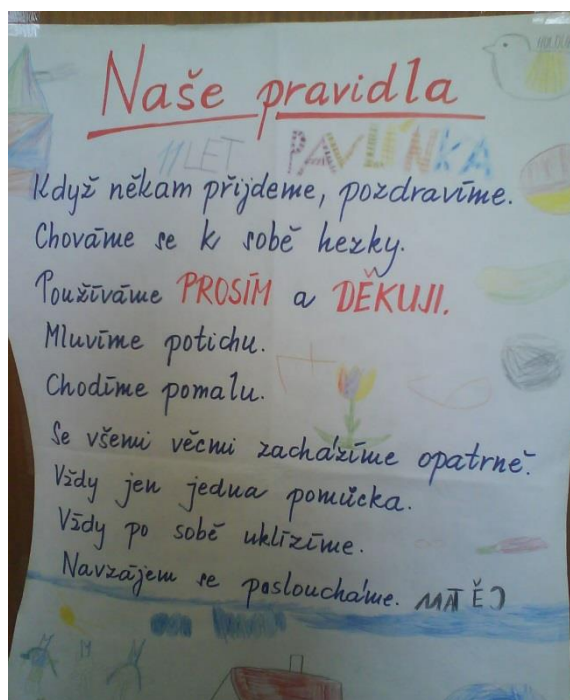 Naše pravidla
11 LET PAVLÍNKA
Když někam přijdeme, pozdravíme.
Chováme se k sobě hezky.
Používáme PROSÍM a DĚKUJI.
Mluvíme potichu.
Chodíme pomalu.
Se všemi věcmi zacházíme opatrně.
Vždy jen jedna pomůcka.
Vždy po sobě uklízíme.
Navzájem se posloucháme. MATĚJ